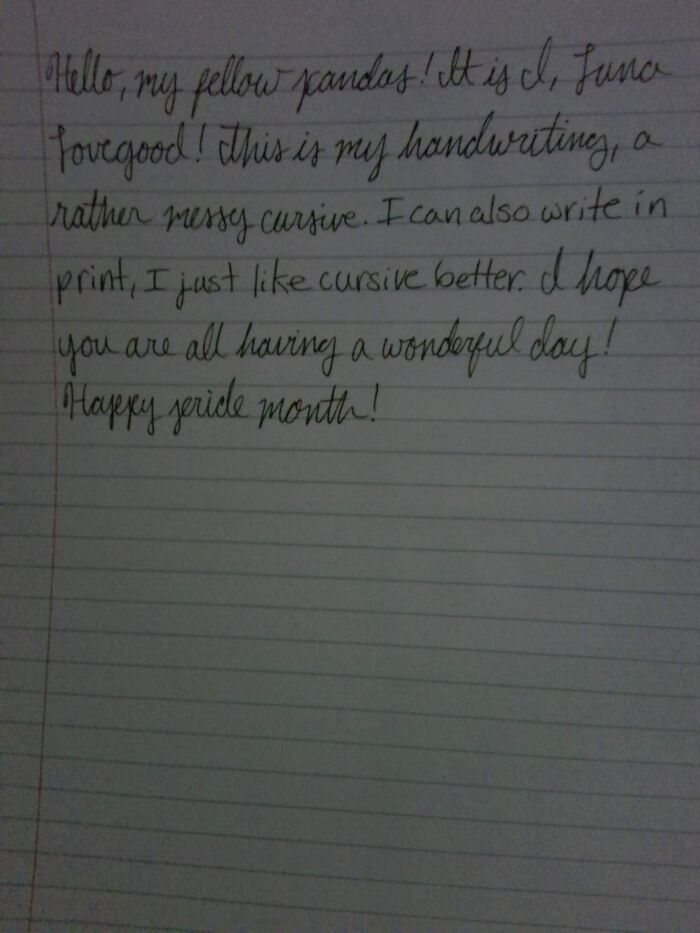 Hello, my fellow pandas! It is I, Luna
Lovegood! This is my handwriting, a
rather messy cursive. I can also write in
print, I just like cursive better. I hope
you are all having a wonderful day!
Happy pride month!